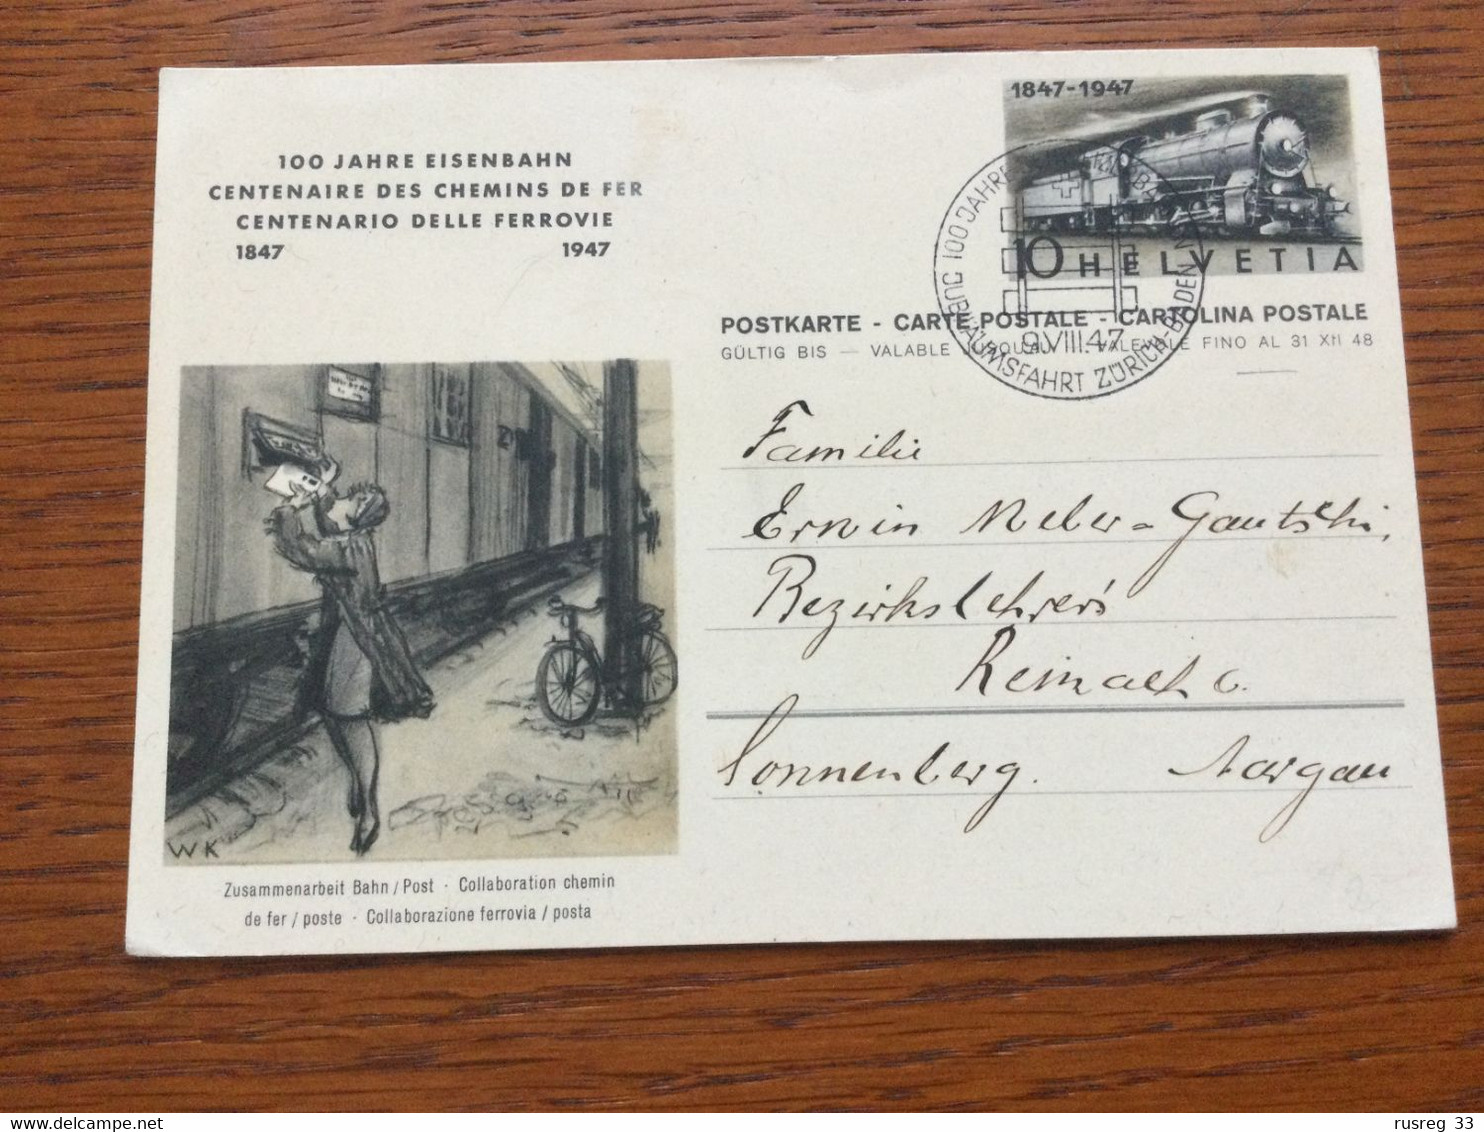 1847-1947
10 HELVETIA
100 JAHRE EISENBAHN
CENTENAIRE DES CHEMINS DE FER
CENTENARIO DELLE FERROVIE
1847 1947
POSTKARTE - CARTE POSTALE - CARTOLINA POSTALE
GÜLTIG BIS — VALABLE JUSQU'AU FINO AL 31 XII 48
JUBILÄUMSFAHRT ZÜRICH-BADEN
100 JAHRE
9.VIII.47
Familie
Erwin Weber-Gautschi,
Bezirkslehrers
Reinach
Sonnenberg. Aargau
WK
Zusammenarbeit Bahn / Post · Collaboration chemin
de fer / poste · Collaborazione ferrovia / posta
rusreg 33